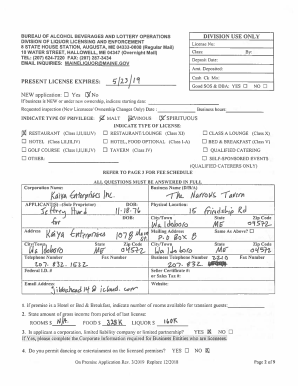 BUREAU OF ALCOHOL BEVERAGES AND LOTTERY OPERATIONS
DIVISION OF LIQUOR LICENSING AND ENFORCEMENT
8 STATE HOUSE STATION, AUGUSTA, ME 04333-0008 (Regular Mail)
10 WATER STREET, HALLOWELL, ME 04347 (Overnight Mail)
TEL: (207) 624-7220 FAX: (207) 287-3434
EMAIL INQUIRIES: MAINELIQUOR@MAINE.GOV
DIVISION USE ONLY
License No:
Class: By:
Deposit Date:
Amt. Deposited:
Cash Ck Mo:
Good SOS & DBA: YES NO
PRESENT LICENSE EXPIRES: 5/23/19
NEW application: Yes No
If business is NEW or under new ownership, indicate starting date:
Requested inspection (New Licensees/ Ownership Changes Only) Date: Business hours:
INDICATE TYPE OF PRIVILEGE: MALT VINOUS SPIRITUOUS
INDICATE TYPE OF LICENSE:
RESTAURANT (Class I,II,III,IV) RESTAURANT/LOUNGE (Class XI) CLASS A LOUNGE (Class X)
HOTEL (Class I,II,III,IV) HOTEL, FOOD OPTIONAL (Class I-A) BED & BREAKFAST (Class V)
GOLF COURSE (Class I,II,III,IV) TAVERN (Class IV) QUALIFIED CATERING
OTHER: SELF-SPONSORED EVENTS
(QUALIFIED CATERERS ONLY)
REFER TO PAGE 3 FOR FEE SCHEDULE
ALL QUESTIONS MUST BE ANSWERED IN FULL
Corporation Name: Business Name (D/B/A)
Kaiya Enterprises Inc. The Narrows Tavern
APPLICANT(S) –(Sole Proprietor) DOB: Physical Location:
11-18-76 15 Friendship Rd
for DOB: City/Town State Zip Code
Waldoboro ME 04572
Address Mailing Address Same as Above?
Kaiya Enterprises 1078 P.O BOX
City/Town State Zip Code City/Town State Zip Code
Waldoboro ME 04572 Waldoboro ME 04572
Telephone Number Fax Number Business Telephone Number Fax Number
207.832.
Federal I.D. # Seller Certificate #:
or Sales Tax #:
Email Address: Website:
1. If premise is a Hotel or Bed & Breakfast, indicate number of rooms available for transient guests:
2. State amount of gross income from period of last license:
ROOMS $ N/A FOOD $ LIQUOR $ 160K
3. Is applicant a corporation, limited liability company or limited partnership? YES NO
If Yes, please complete the Corporate Information required for Business Entities who are licensees.
4. Do you permit dancing or entertainment on the licensed premises? YES NO
On Premise Application Rev. 3/2019 Replaces 12/2018 Page 2 of 9